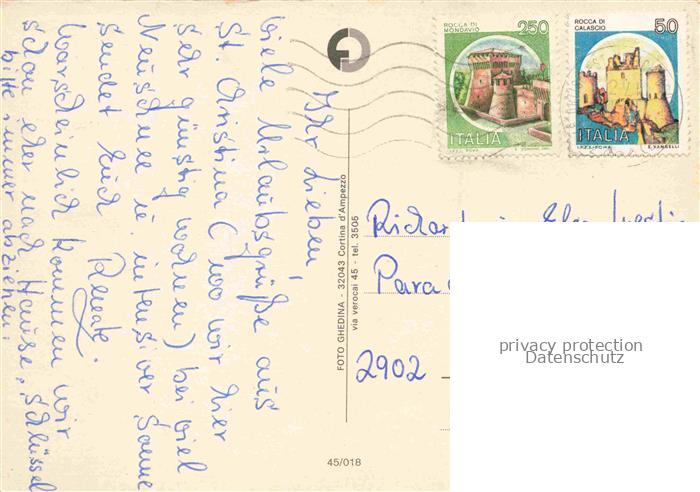 Ihr Lieben,
viele Urlaubsgrüße aus
St. Christina (wo wir hier
sehr günstig wohnen) bei viel
Neuschnee u. intensiver Sonne
sendet Euch
Renate.
Warscheinlich kommen wir
schon eher nach Hause, Schlüssel
bitte immer abziehen!
FOTO GHEDINA - 32043 Cortina d'Ampezzo
via verocai 45 - tel. 3505
45/018
ROCCA DI
MONDAVIO
250
ITALIA
ROCCA DI
CALASCIO
50
ITALIA
I.P.Z.S. - ROMA
E. VANGELLI
Richard
Para
2902
privacy protection
Datenschutz